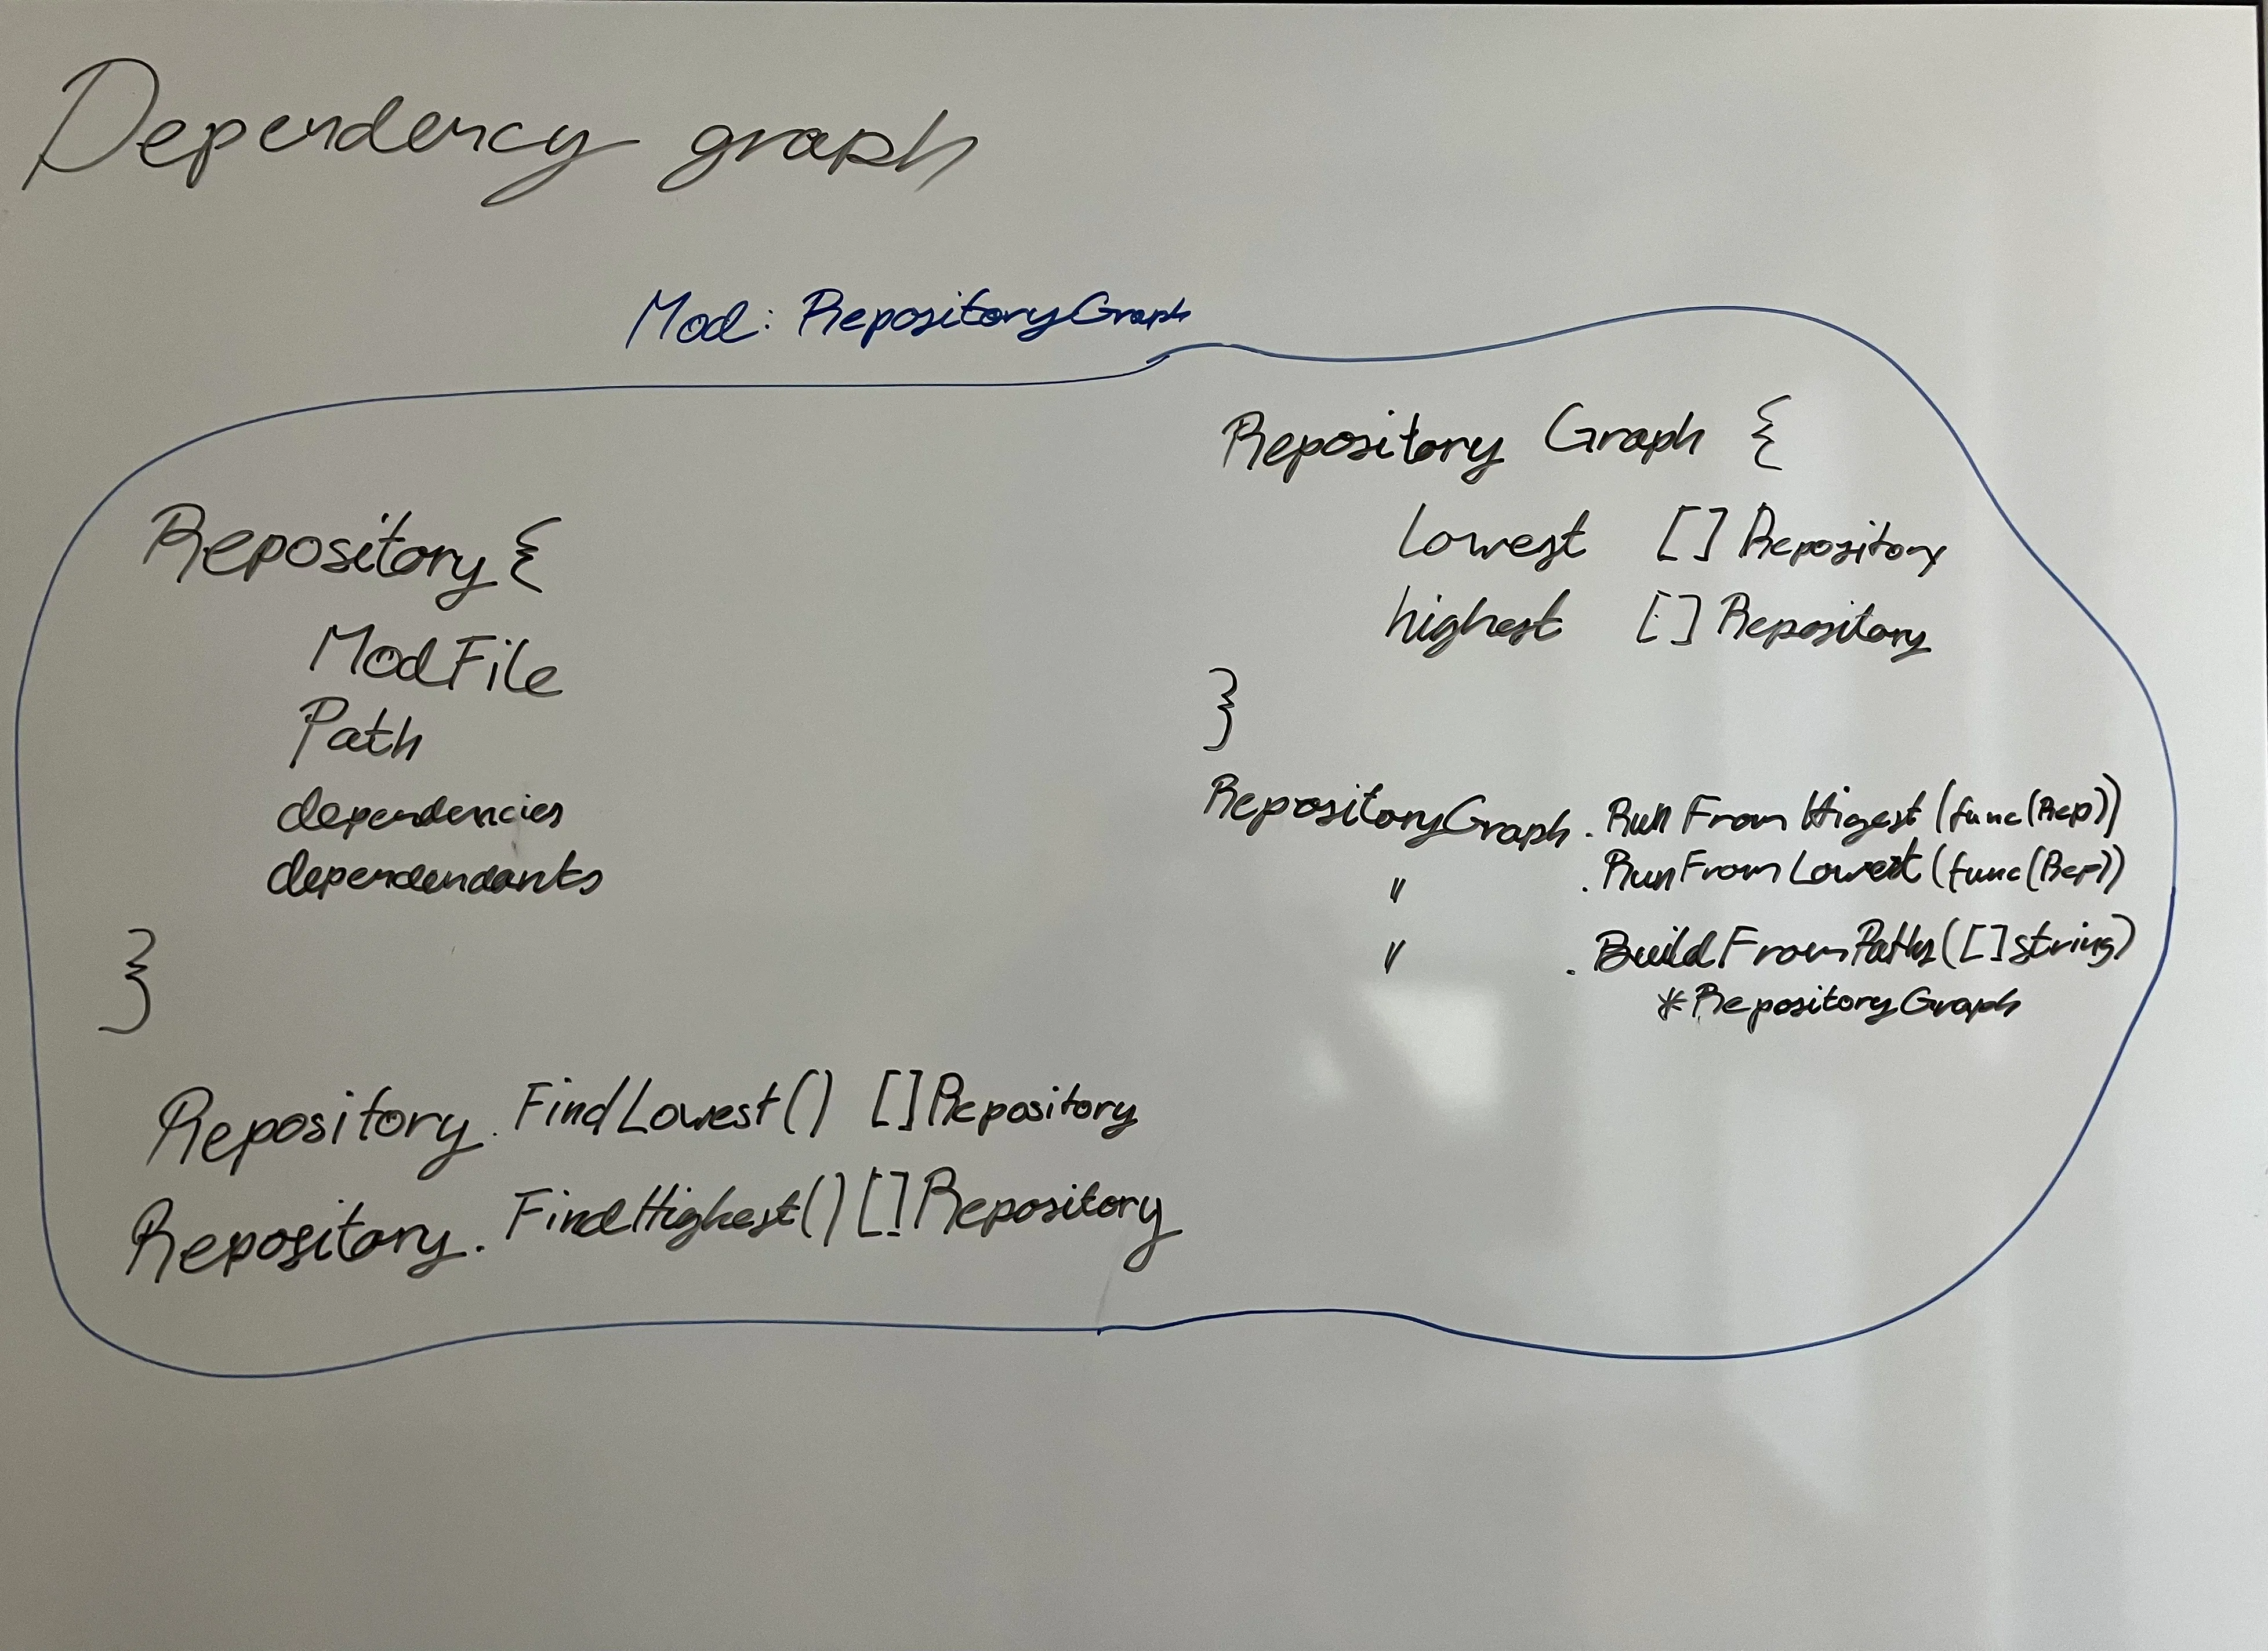 Dependency graph
Mod: RepositoryGraph
Repository {
ModFile
Path
dependencies
dependendants
}
Repository.FindLowest() []Repository
Repository.FindHighest() []Repository
Repository Graph {
lowest [] Repository
highest [] Repository
}
RepositoryGraph.RunFromHigest(func(Rep))
" .RunFromLowest(func(Rep))
" .BuildFromPaths([]string)
*RepositoryGraph